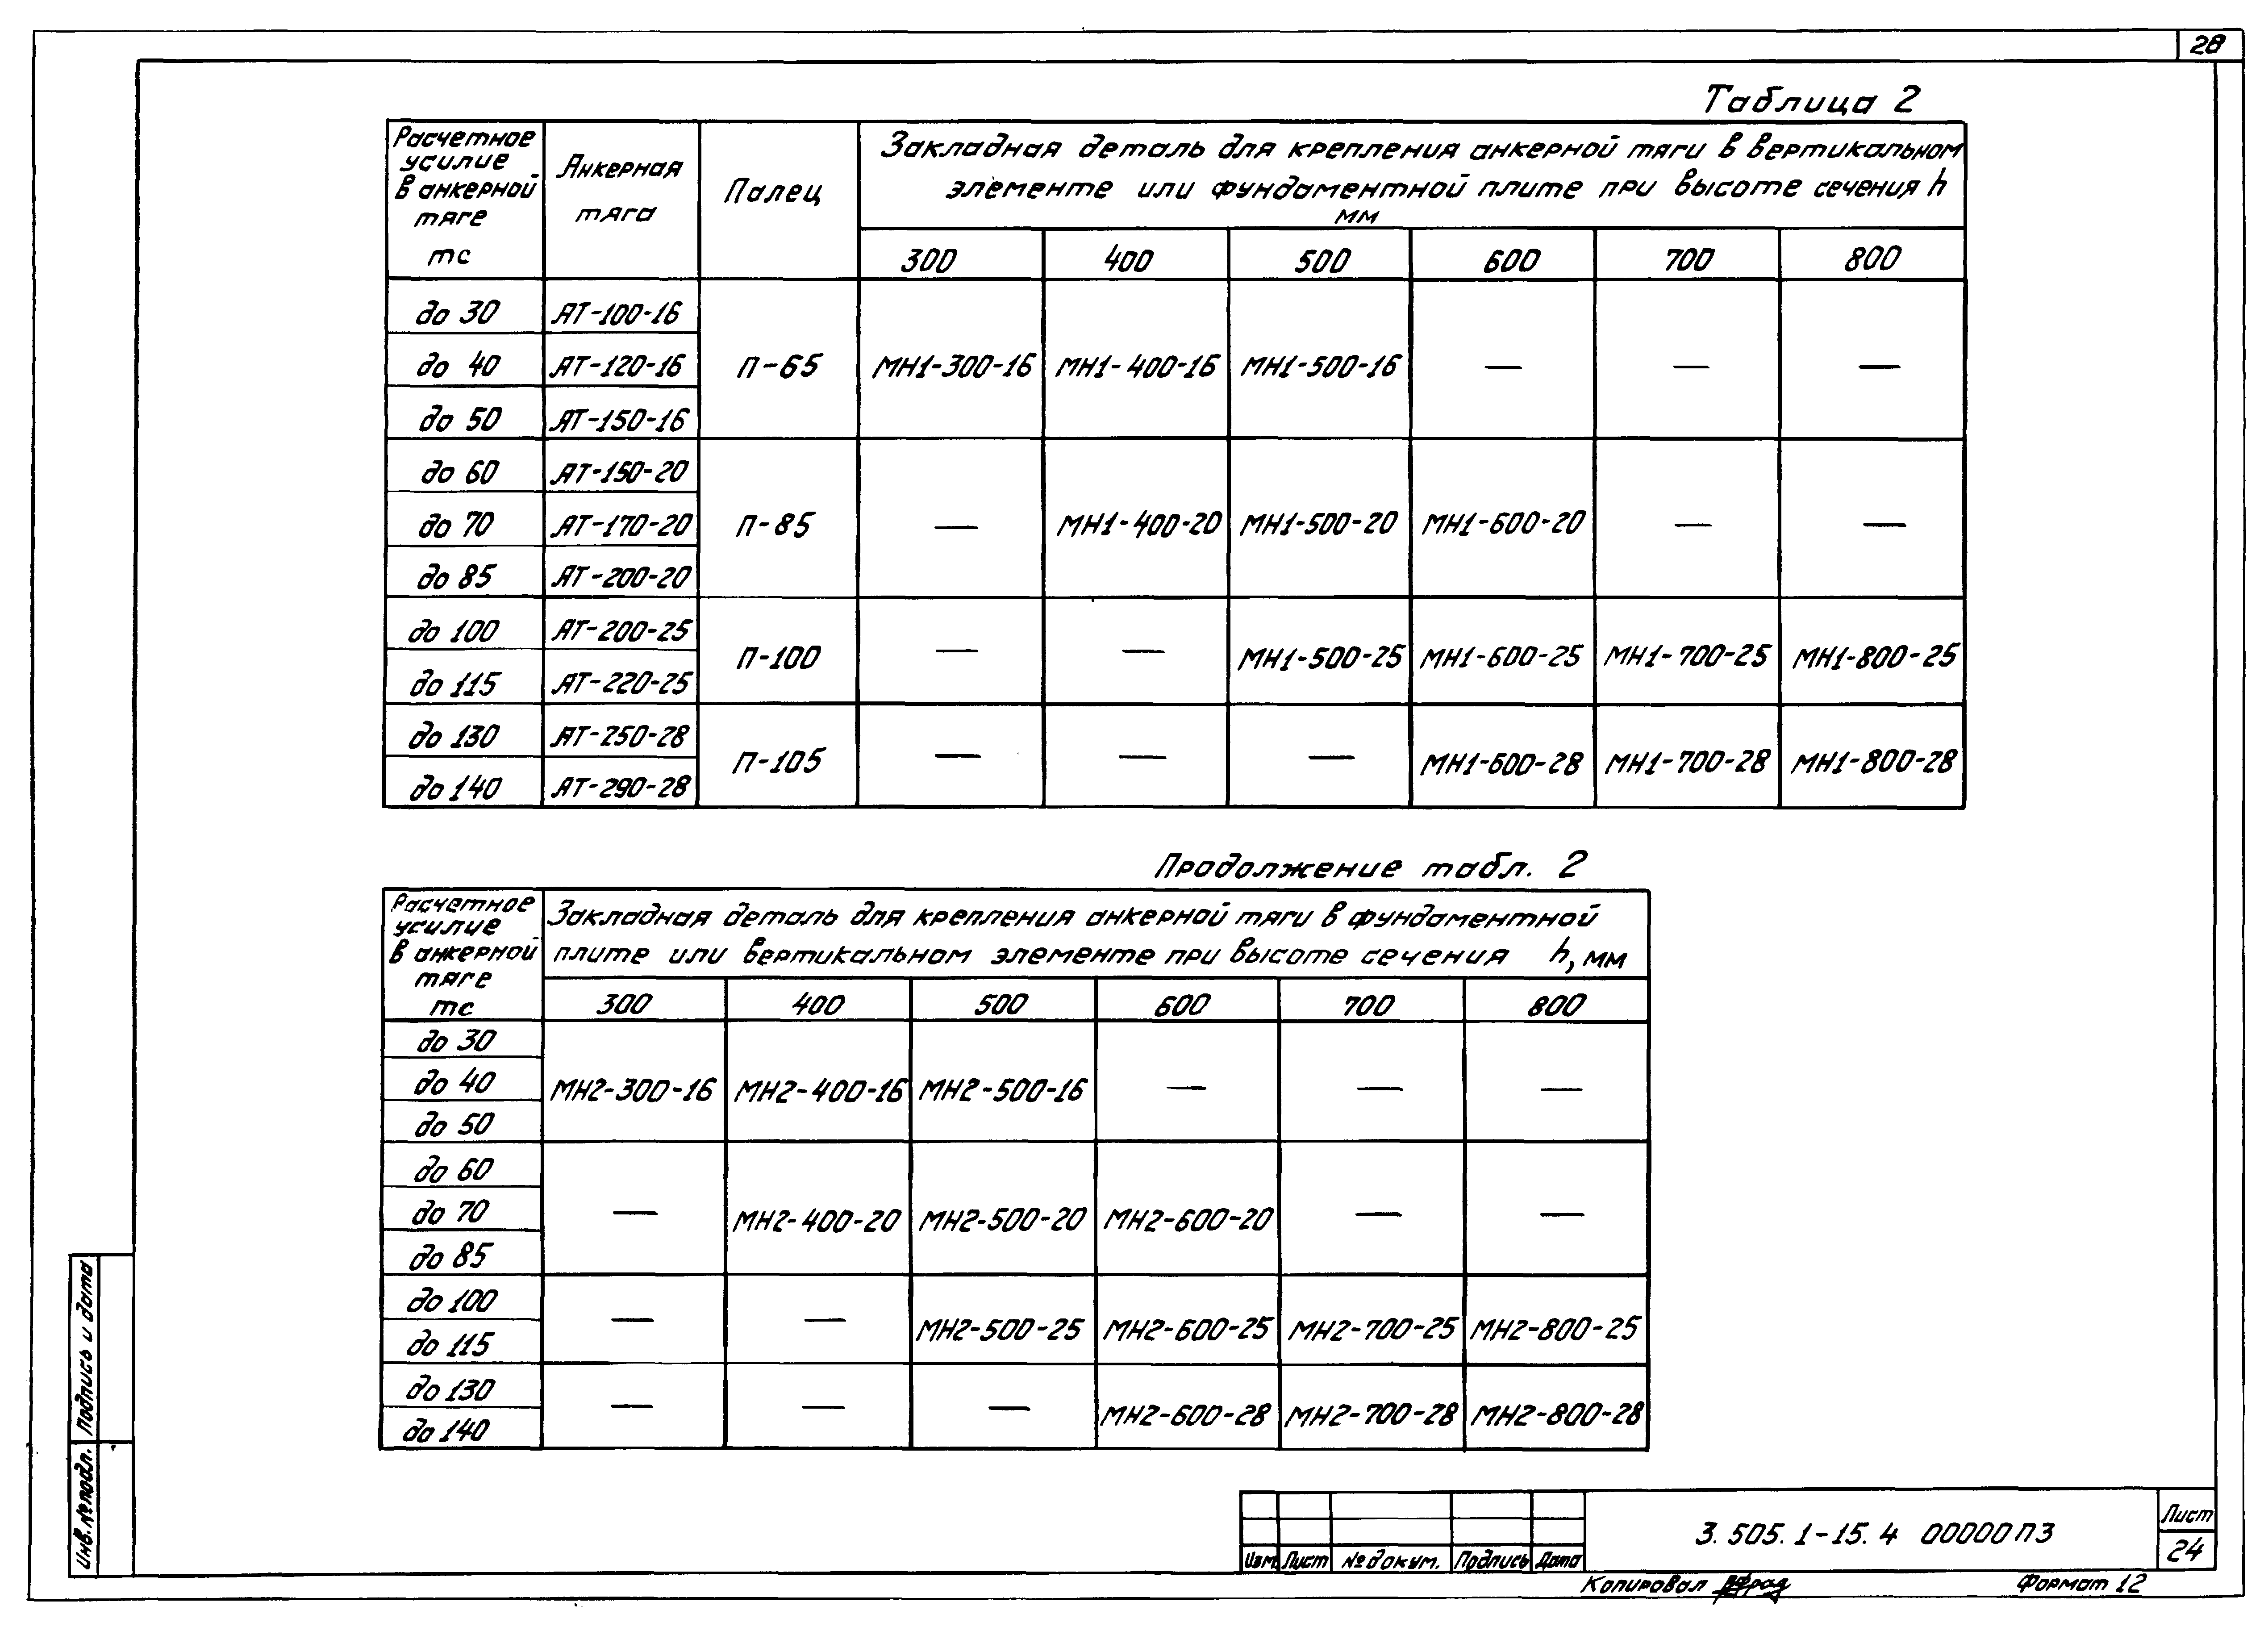 28
Таблица 2
Расчетное усилие в анкерной тяге тс
Анкерная тяга
Палец
Закладная деталь для крепления анкерной тяги в вертикальном
элементе или фундаментной плите при высоте сечения h
мм
300 400 500 600 700 800
до 30 АТ-100-16
до 40 АТ-120-16 П-65 МН1-300-16 МН1-400-16 МН1-500-16 — — —
до 50 АТ-150-16
до 60 АТ-150-20
до 70 АТ-170-20 П-85 — МН1-400-20 МН1-500-20 МН1-600-20 — —
до 85 АТ-200-20
до 100 АТ-200-25
П-100 — — МН1-500-25 МН1-600-25 МН1-700-25 МН1-800-25
до 115 АТ-220-25
до 130 АТ-250-28
П-105 — — — МН1-600-28 МН1-700-28 МН1-800-28
до 140 АТ-290-28
Продолжение табл. 2
Расчетное усилие в анкерной тяге тс
Закладная деталь для крепления анкерной тяги в фундаментной
плите или вертикальном элементе при высоте сечения h, мм
300 400 500 600 700 800
до 30
до 40 МН2-300-16 МН2-400-16 МН2-500-16 — — —
до 50
до 60
до 70 — МН2-400-20 МН2-500-20 МН2-600-20 — —
до 85
до 100
— — МН2-500-25 МН2-600-25 МН2-700-25 МН2-800-25
до 115
до 130
— — — МН2-600-28 МН2-700-28 МН2-800-28
до 140
Инв.№подл. Подпись и дата
Изм Лист № докум. Подпись Дата
3.505.1-15.4 00000ПЗ
Лист
24
Копировал
Формат 12